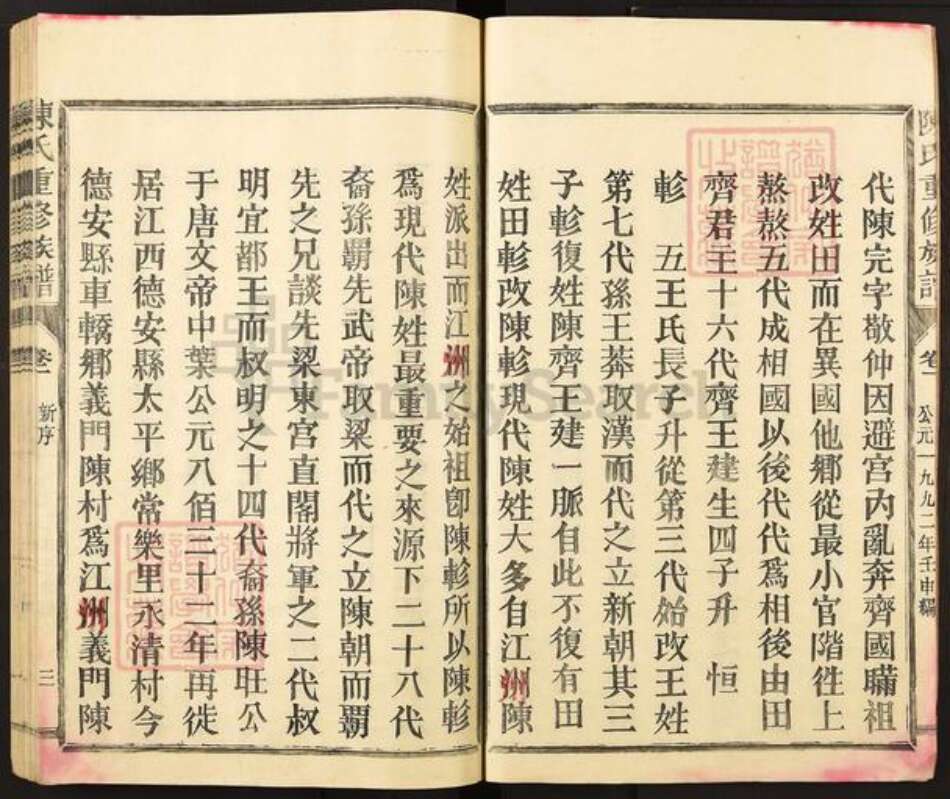 陳氏重修族譜 卷一 公元一九九二年壬申編
代陳完字敬仲因避宮內亂奔齊國瞞祖
改姓田而在異國他鄉從最小官階徃上
熬熬五代成相國以後代代為相後由田
齊君主十六代齊王建生四子升 恒
軫 五王氏長子升從第三代始改王姓
第七代孫王莽取漢而代之立新朝其三
子軫復姓陳齊王建一脈自此不復有田
姓田軫改陳軫現代陳姓大多自江洲陳
姓派出而江洲之始祖卽陳軫所以陳軫
為現代陳姓最重要之來源下二十八代
裔孫霸先武帝取梁而代之立陳朝而霸
先之兄談先梁東宮直閣將軍之二代叔
明宜都王而叔明之十四代裔孫陳旺公
于唐文帝中葉公元八佰三十二年再徙
居江西德安縣太平鄉常樂里永清村今
德安縣車轎鄉義門陳村為江洲義門陳
陳氏重修族譜 卷一 新序 三
FamilySearch